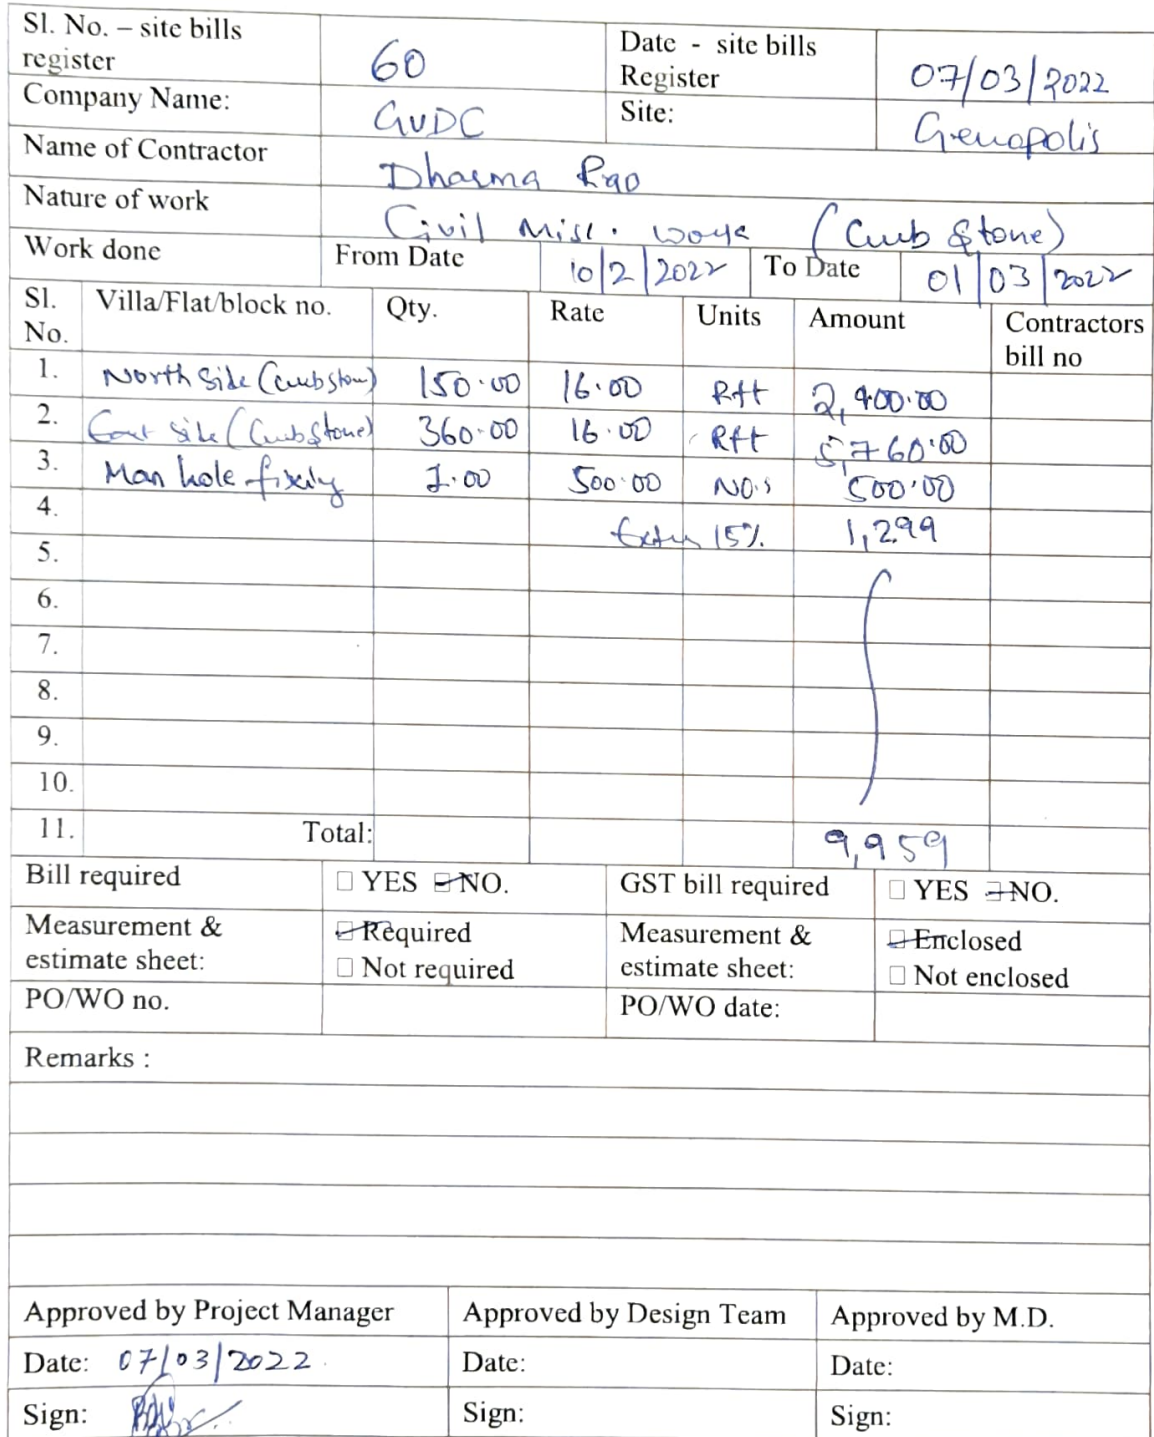 Sl. No. – site bills register 60 Date - site bills Register 07/03/2022
Company Name: GVDC Site: Genopolis
Name of Contractor Dharma Rao
Nature of work Civil Misc. works (Curb Stone)
Work done From Date 10/2/2022 To Date 01/03/2022
Sl. No. Villa/Flat/block no. Qty. Rate Units Amount Contractors bill no
1. North Side (curbstone) 150.00 16.00 Rft 2,400.00
2. East Side (Curbstone) 360.00 16.00 Rft 5,760.00
3. Man hole fixing 1.00 500.00 NO.s 500.00
4. Extra 15% 1,299
5.
6.
7.
8.
9.
10.
11. Total: 9,959
Bill required □ YES □ NO. GST bill required □ YES □ NO.
Measurement & estimate sheet: □ Required □ Not required Measurement & estimate sheet: □ Enclosed □ Not enclosed
PO/WO no. PO/WO date:
Remarks :
Approved by Project Manager Approved by Design Team Approved by M.D.
Date: 07/03/2022 Date: Date:
Sign: Sign: Sign: